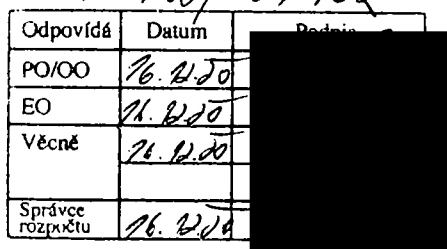 Odpovídá Datum Podpis
PO/OO 16.12.20
EO 16.12.20
Věcně 16.12.20
Správce
rozpočtu 16.12.20